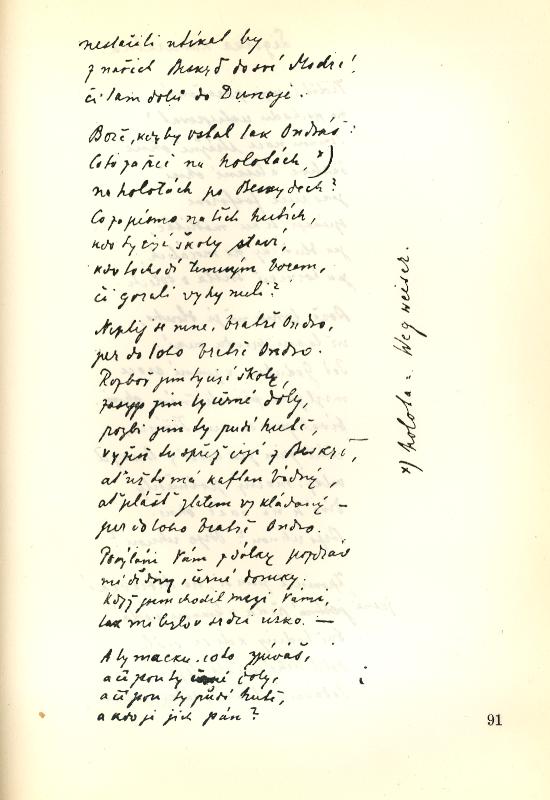 nestačili utíkat by
z našich Beskyd do své Modré!
či tam dolů do Dunaje.
Bože, kdyby vstal tak Ondráš:
Coto za řeč na holotách, x)
na holotách po Beskydech?
Co za písmo na těch hutích,
kdo ty cizí školy staví,
kdo to chodí temným borem,
či gorali vyhynuli?
Neptej se mne, bratře Ondro,
per do toho bratře Ondro.
Rozboř jim ty cizí školy,
zasyp jim ty černé doly,
rozbi jim ty pudí hutě,
vyžeň tu spřež cizí z Beskyd,
ať už to má kaftan bídný,
ať plášť zlatem vykládaný —
per do toho bratře Ondro.
Posýlám Vám z dálky pozdrav
mé dědiny, černé doruky.
Když jsem chodil mezi Vámi,
tak mi bylo v srdci úzko. —
A ty macku, coto zpíváš,
a čí jsou ty doly,
a čí jsou ty pudí hutě,
a kdo je jich pán?
x) holota = Wegweiser.
91